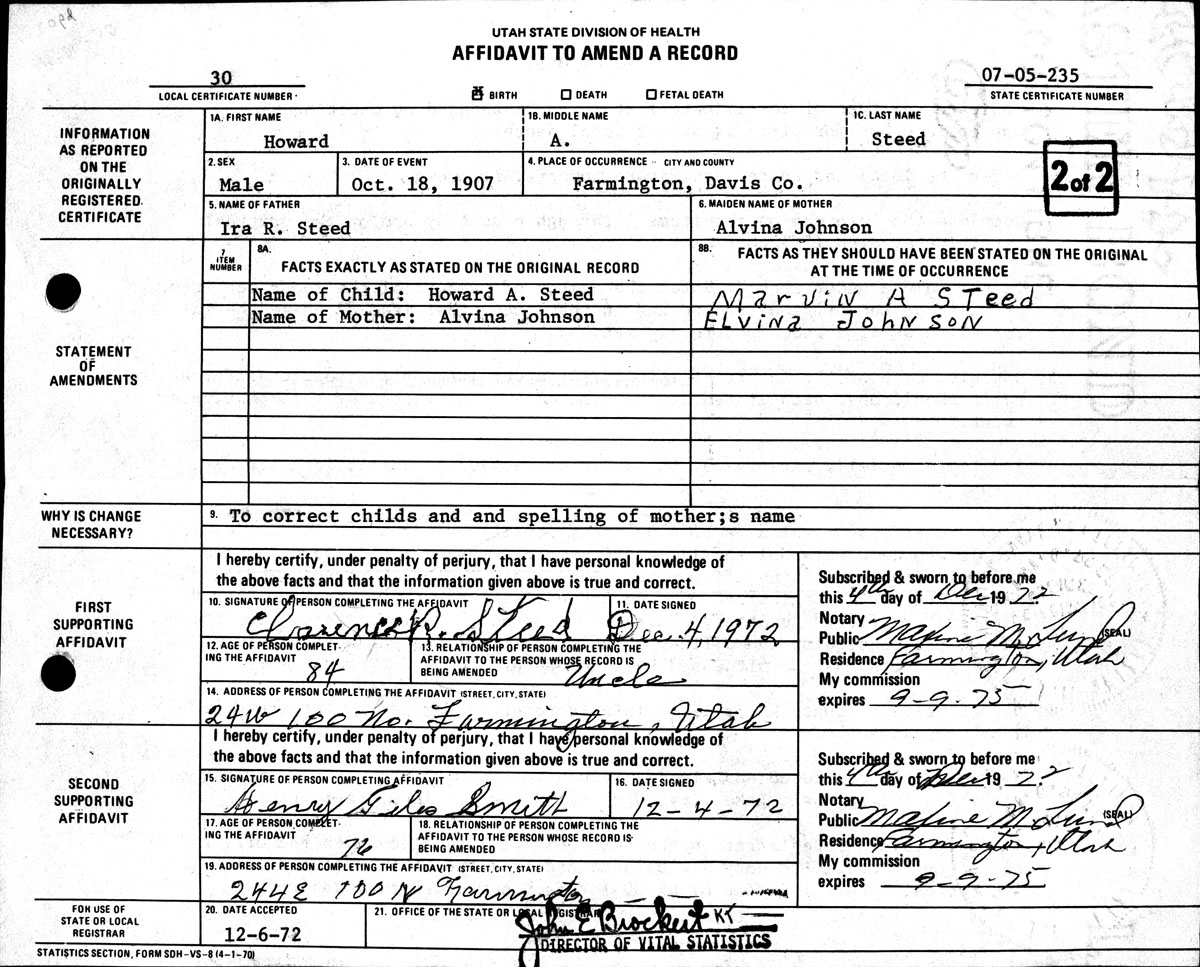 UTAH STATE DIVISION OF HEALTH
AFFIDAVIT TO AMEND A RECORD
30
LOCAL CERTIFICATE NUMBER
☒ BIRTH ☐ DEATH ☐ FETAL DEATH
07-05-235
STATE CERTIFICATE NUMBER
INFORMATION
AS REPORTED
ON THE
ORIGINALLY
REGISTERED
CERTIFICATE
1A. FIRST NAME
Howard
1B. MIDDLE NAME
A.
1C. LAST NAME
Steed
2. SEX
Male
3. DATE OF EVENT
Oct. 18, 1907
4. PLACE OF OCCURRENCE -- CITY AND COUNTY
Farmington, Davis Co.
2 of 2
5. NAME OF FATHER
Ira R. Steed
6. MAIDEN NAME OF MOTHER
Alvina Johnson
STATEMENT
OF
AMENDMENTS
7
ITEM
NUMBER
8A.
FACTS EXACTLY AS STATED ON THE ORIGINAL RECORD
8B.
FACTS AS THEY SHOULD HAVE BEEN STATED ON THE ORIGINAL
AT THE TIME OF OCCURRENCE
Name of Child: Howard A. Steed
Marvin A Steed
Name of Mother: Alvina Johnson
Elvina Johnson
WHY IS CHANGE
NECESSARY?
9. To correct childs and and spelling of mother;s name
FIRST
SUPPORTING
AFFIDAVIT
I hereby certify, under penalty of perjury, that I have personal knowledge of
the above facts and that the information given above is true and correct.
10. SIGNATURE OF PERSON COMPLETING THE AFFIDAVIT
Clarence R. Steed
11. DATE SIGNED
Dec. 4, 1972
12. AGE OF PERSON COMPLET-
ING THE AFFIDAVIT
84
13. RELATIONSHIP OF PERSON COMPLETING THE
AFFIDAVIT TO THE PERSON WHOSE RECORD IS
BEING AMENDED
Uncle
14. ADDRESS OF PERSON COMPLETING THE AFFIDAVIT (STREET, CITY, STATE)
24W 100 No. Farmington, Utah
Subscribed & sworn to before me
this 4th day of Dec 19 72
Notary
Public Maxine M. Lund (SEAL)
Residence Farmington, Utah
My commission
expires 9-9-75
SECOND
SUPPORTING
AFFIDAVIT
I hereby certify, under penalty of perjury, that I have personal knowledge of
the above facts and that the information given above is true and correct.
15. SIGNATURE OF PERSON COMPLETING THE AFFIDAVIT
Henry Giles Smith
16. DATE SIGNED
12-4-72
17. AGE OF PERSON COMPLET-
ING THE AFFIDAVIT
76
18. RELATIONSHIP OF PERSON COMPLETING THE
AFFIDAVIT TO THE PERSON WHOSE RECORD IS
BEING AMENDED
19. ADDRESS OF PERSON COMPLETING THE AFFIDAVIT (STREET, CITY, STATE)
244E 100 N Farmington
Subscribed & sworn to before me
this 4th day of Dec 19 72
Notary
Public Maxine M. Lund (SEAL)
Residence Farmington, Utah
My commission
expires 9-9-75
FOR USE OF
STATE OR LOCAL
REGISTRAR
20. DATE ACCEPTED
12-6-72
21. OFFICE OF THE STATE OR LOCAL REGISTRAR
John E Brockert KT
DIRECTOR OF VITAL STATISTICS
STATISTICS SECTION, FORM SDH-VS-8 (4-1-70)